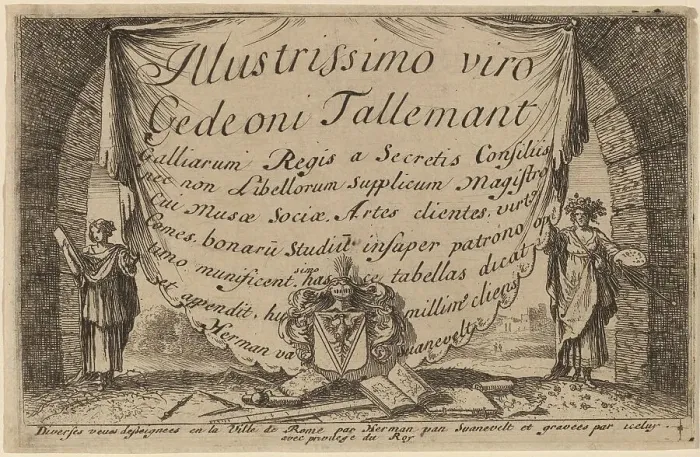 Illustrissimo viro
Gedeoni Tallemant
Galliarum Regis a Secretis Consiliis
nec non Libellorum Supplicum Magistro
Cui Musæ Sociæ, Artes clientes, virtꝰ
Comes, bonarū Studiū insuper patrono opi
timo munificent.simo has ce tabellas dicat
et apendit, hu millimꝰ cliens
Herman va Suanevelt
Diverses veues desseignees en la Ville de Rome par Herman van Suanevelt et gravees par iceluy.
avec privilege du Roy